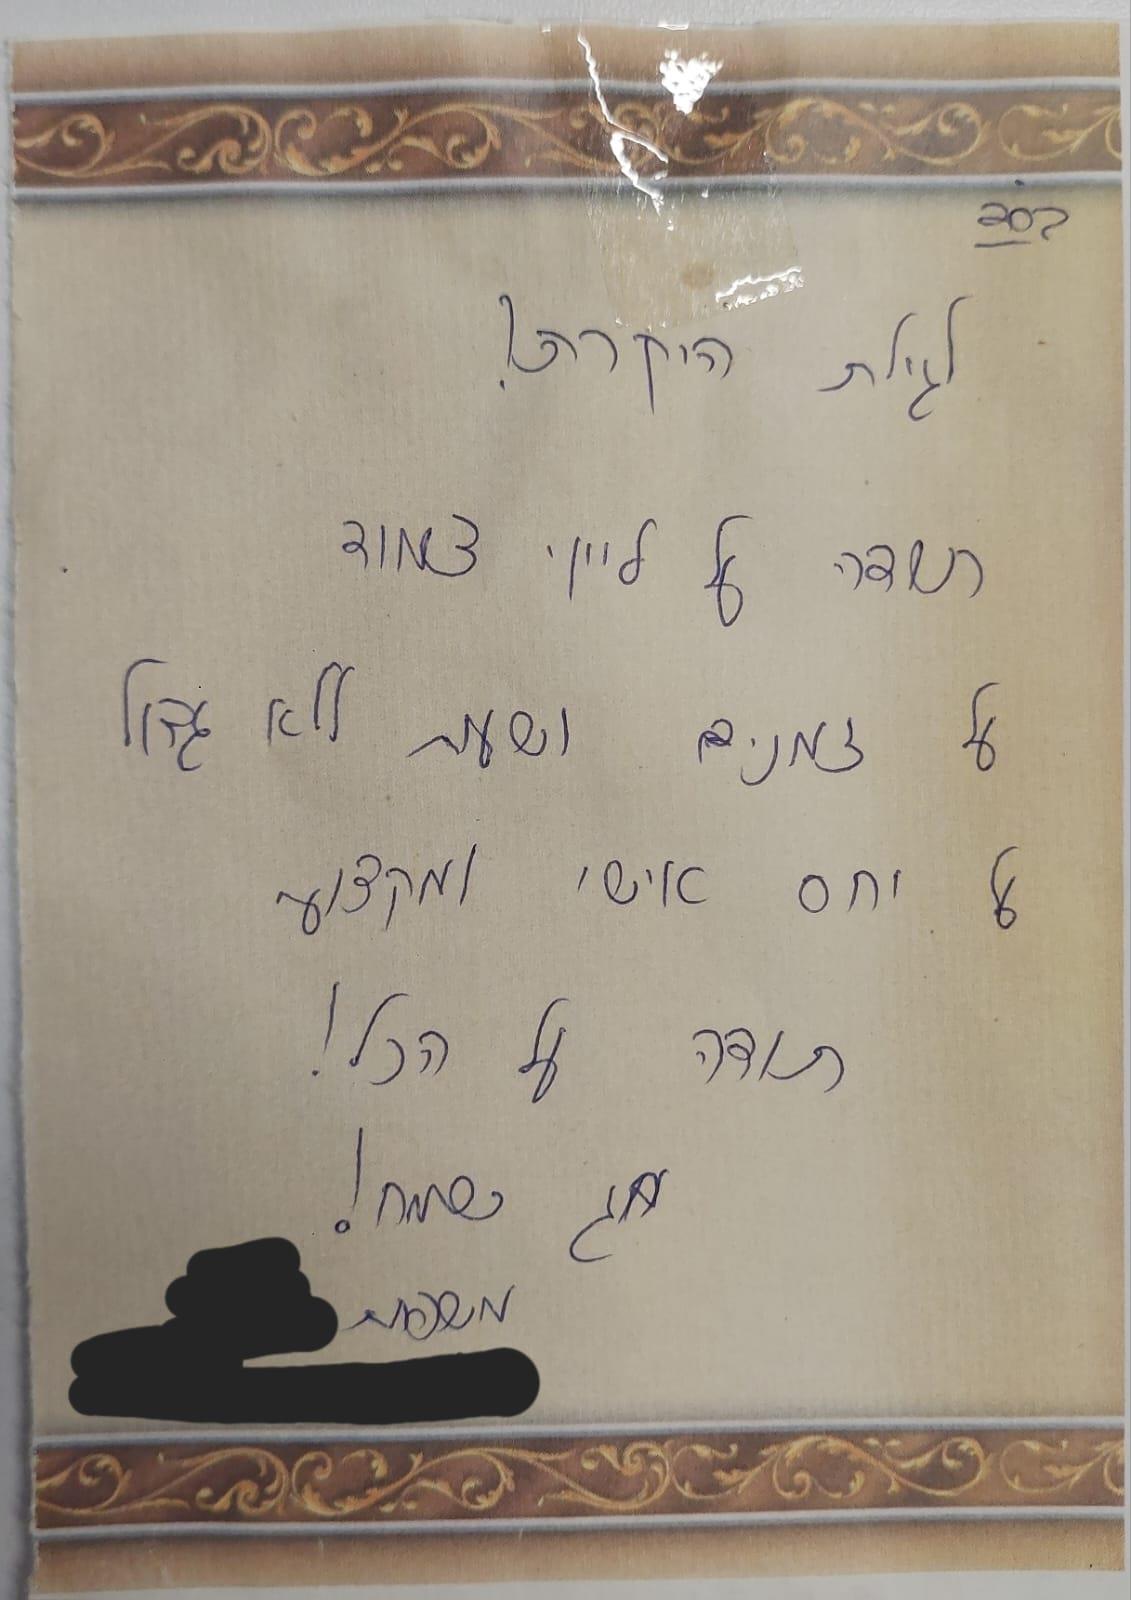 בסד
לגילת היקרה!
תודה על ליווי צמוד
על זמנים ושעות ללא גבול
על יחס אישי ומקצועי
תודה על הכל!
חג שמח!
משפחת